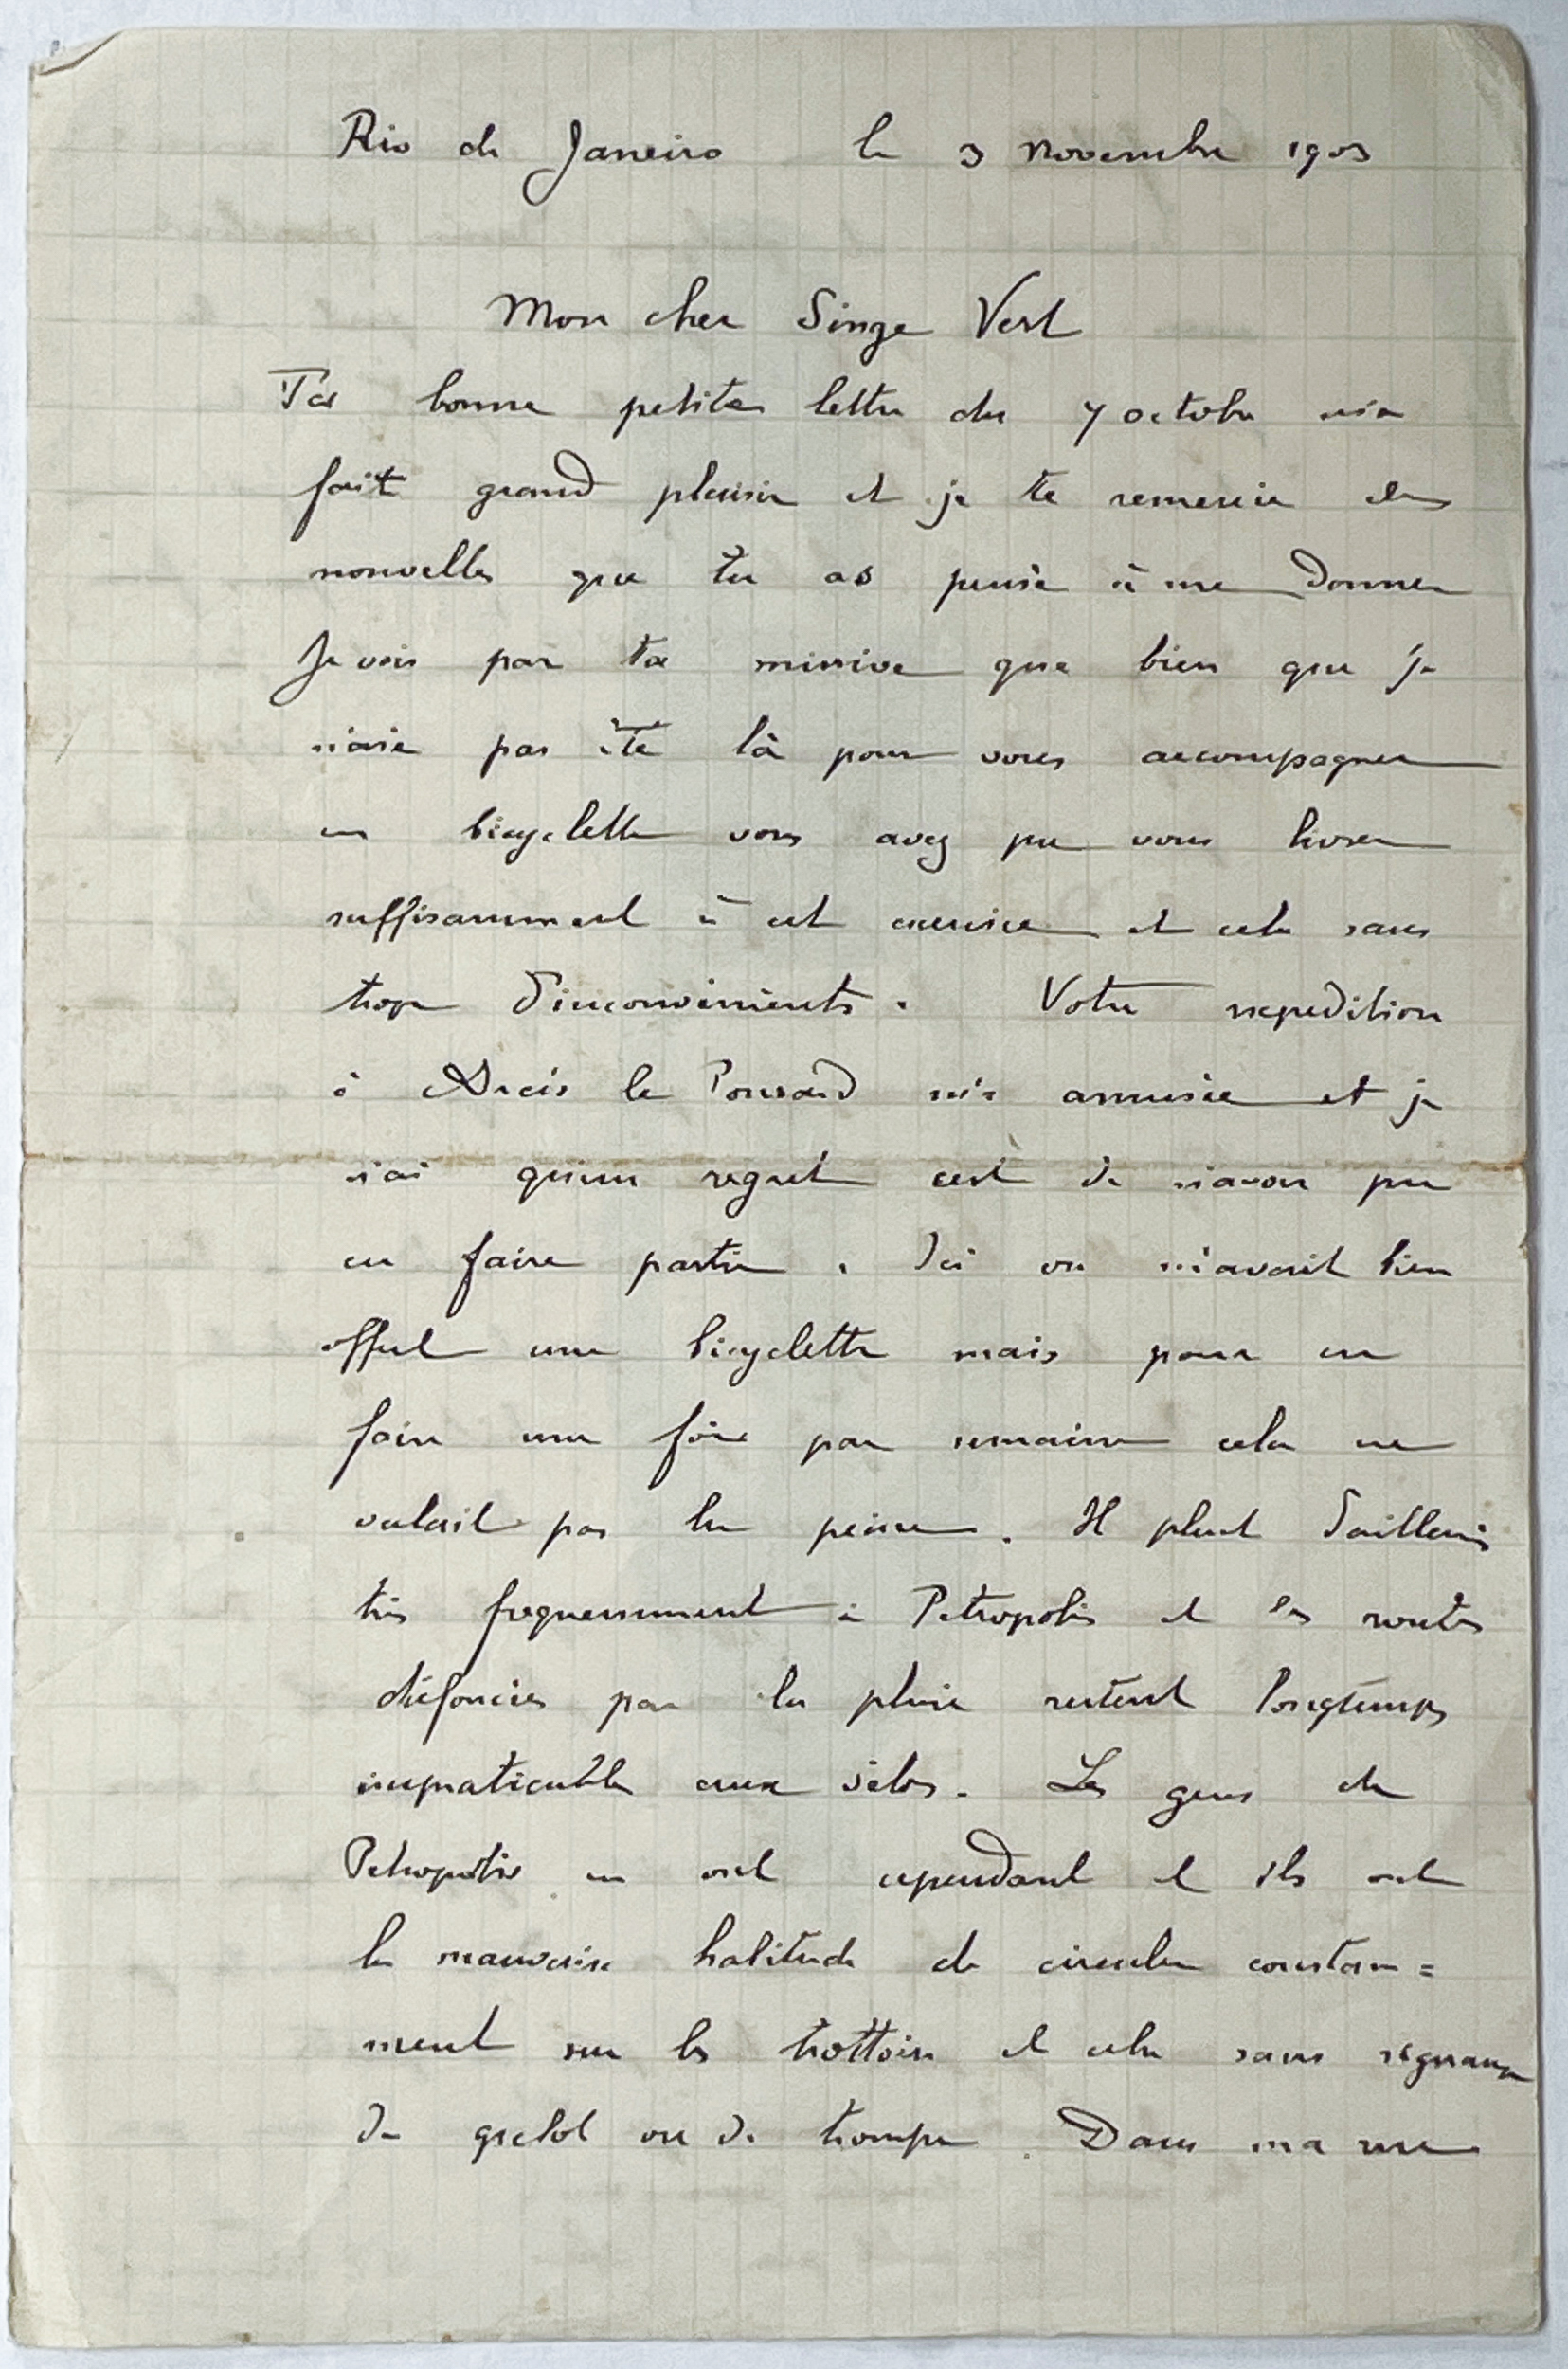 Rio de Janeiro le 3 novembre 1903
Mon cher Singe Vert
Ta bonne petite lettre du 7 octobre m'a
fait grand plaisir et je te remercie des
nouvelles que tu as pensé à me donner
Je vois par ta missive que bien que je
n'aie pas été là pour vous accompagner
en bicyclette vous avez pu vous livrer
suffisamment à cet exercice et cela sans
trop d'inconvénients. Votre expedition
à Arcis le Ponsard m'a amusée et je
n'ai qu'un regret c'est de n'avoir pu
en faire partie. Ici on m'avait bien
offert une bicyclette mais pour en
faire une fois par semaine cela ne
valait pas la peine. Il pleut d'ailleurs
très frequemment à Petropolis et les routes
défoncées par la pluie restent longtemps
impraticables aux vélos. Les gens de
Petropolis en ont cependant et ils ont
la mauvaise habitude de circuler constam=
ment sur les trottoirs et cela sans
de grelot ou de trompe. Dans ma rue